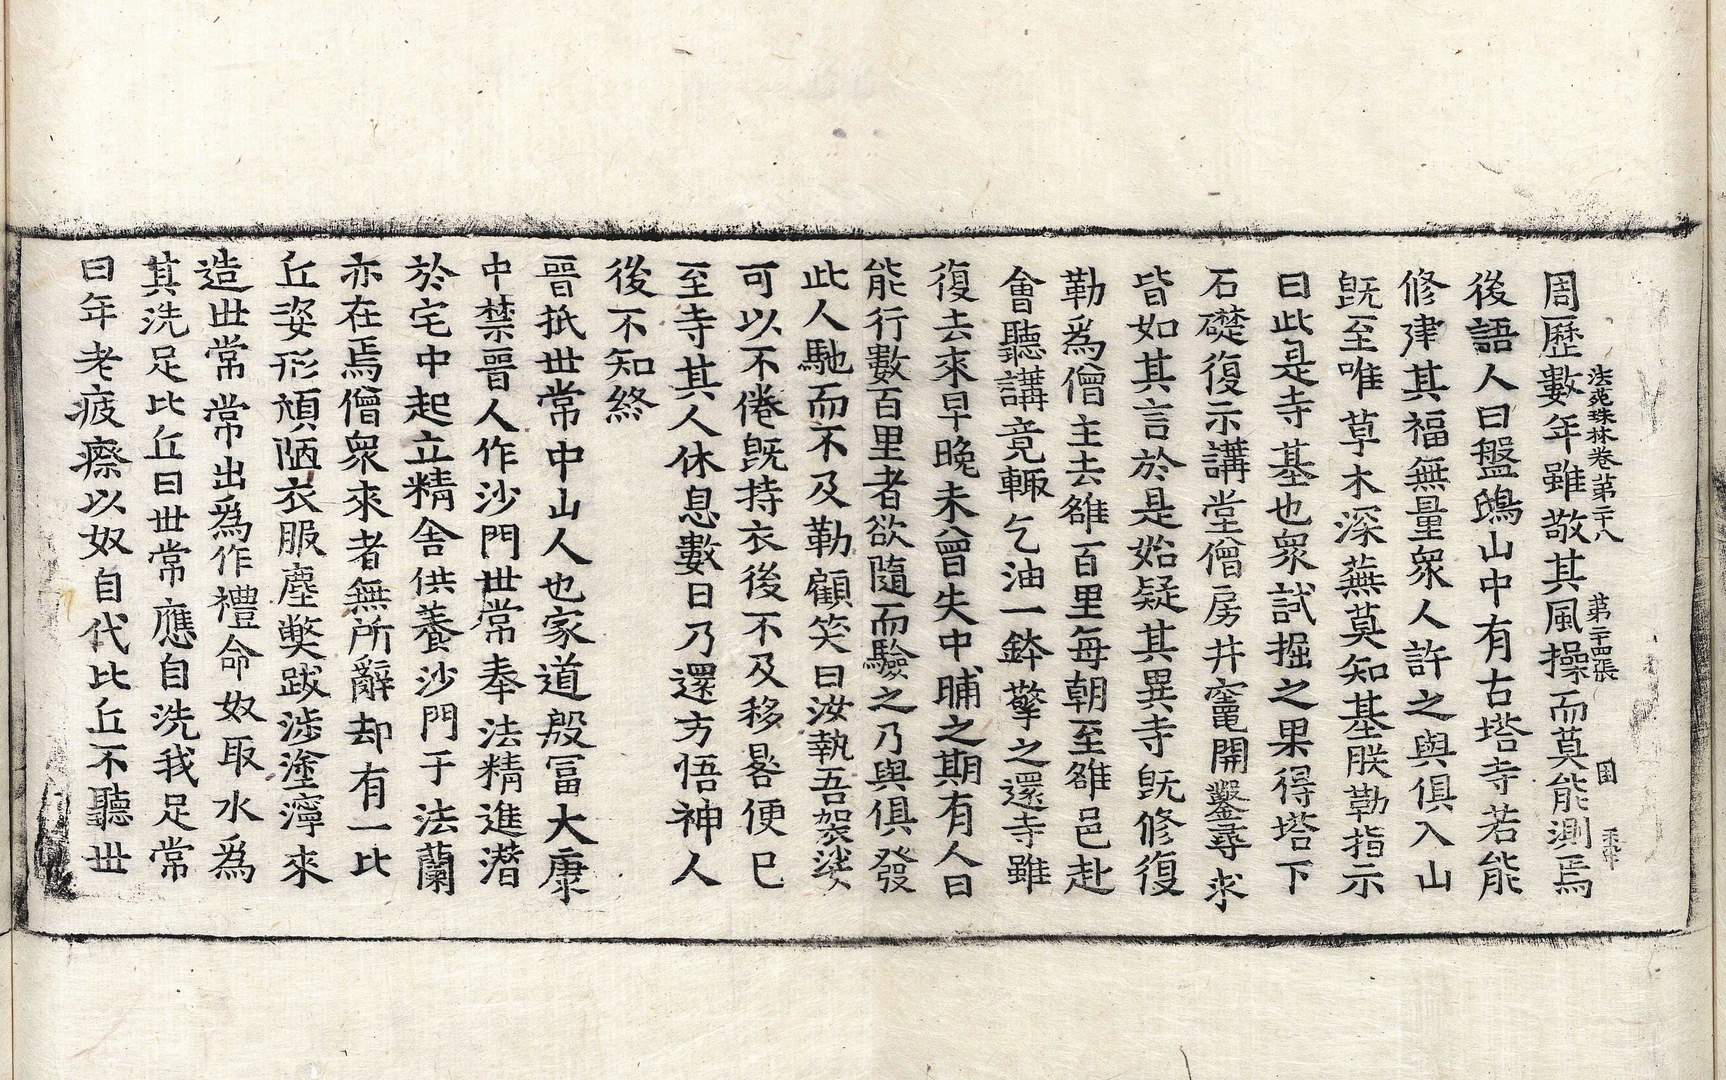 周歷數年雖敬其風操而莫能測焉
法苑珠林卷第二十八 第二十四張 圖
後語人曰盤鴟山中有古塔寺若能
修建其福無量衆人許之與俱入山
旣至唯草木深蕪莫知基朕勒指示
曰此是寺基也衆試掘之果得塔下
石礎復示講堂僧房井竈開鑿尋求
皆如其言於是始疑其異寺旣修復
勒爲僧主去雒一百里每朝至雒邑赴
會聽講竟輙乞油一鉢擎之還寺雖
復去來早晚未曾失中晡之期有人曰
能行數百里者欲隨而驗之乃與俱發
此人馳而不及勒顧笑曰汝執吾袈裟
可以不倦旣持衣後不及移晷便已
至寺其人休息數日乃還方悟神人
後不知終
晉抵世常中山人也家道殷冨大康
中禁晉人作沙門世常奉法精進潛
於宅中起立精舍供養沙門于法蘭
亦在焉僧衆來者無所辭却有一比
丘姿形頑陋衣服塵弊跋涉塗濘來
造世常常出爲作禮命奴取水爲
其洗足比丘曰世常應自洗我足常
曰年老疲瘵以奴自代比丘不聽世